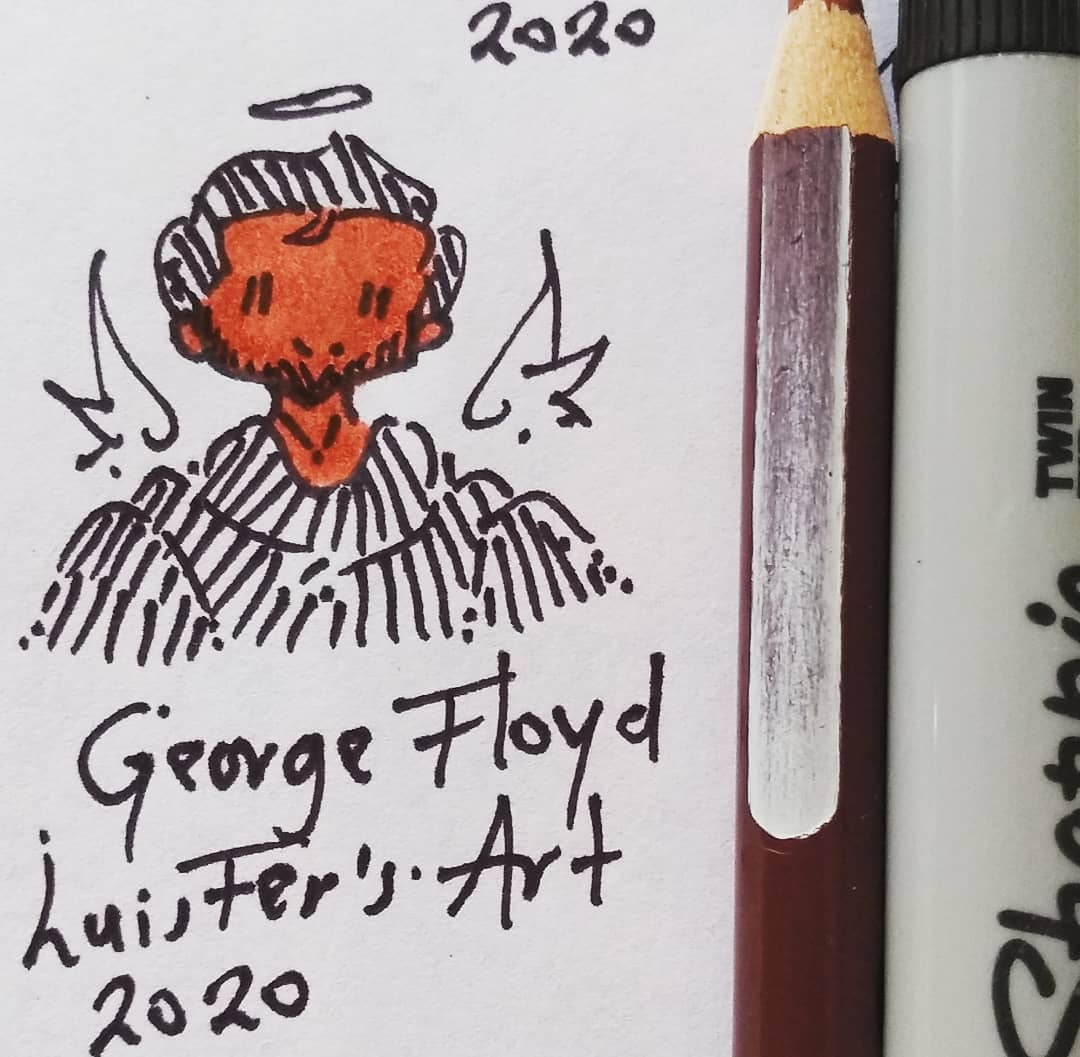 2020
George Floyd
LuisFer's. Art
2020
TWIN